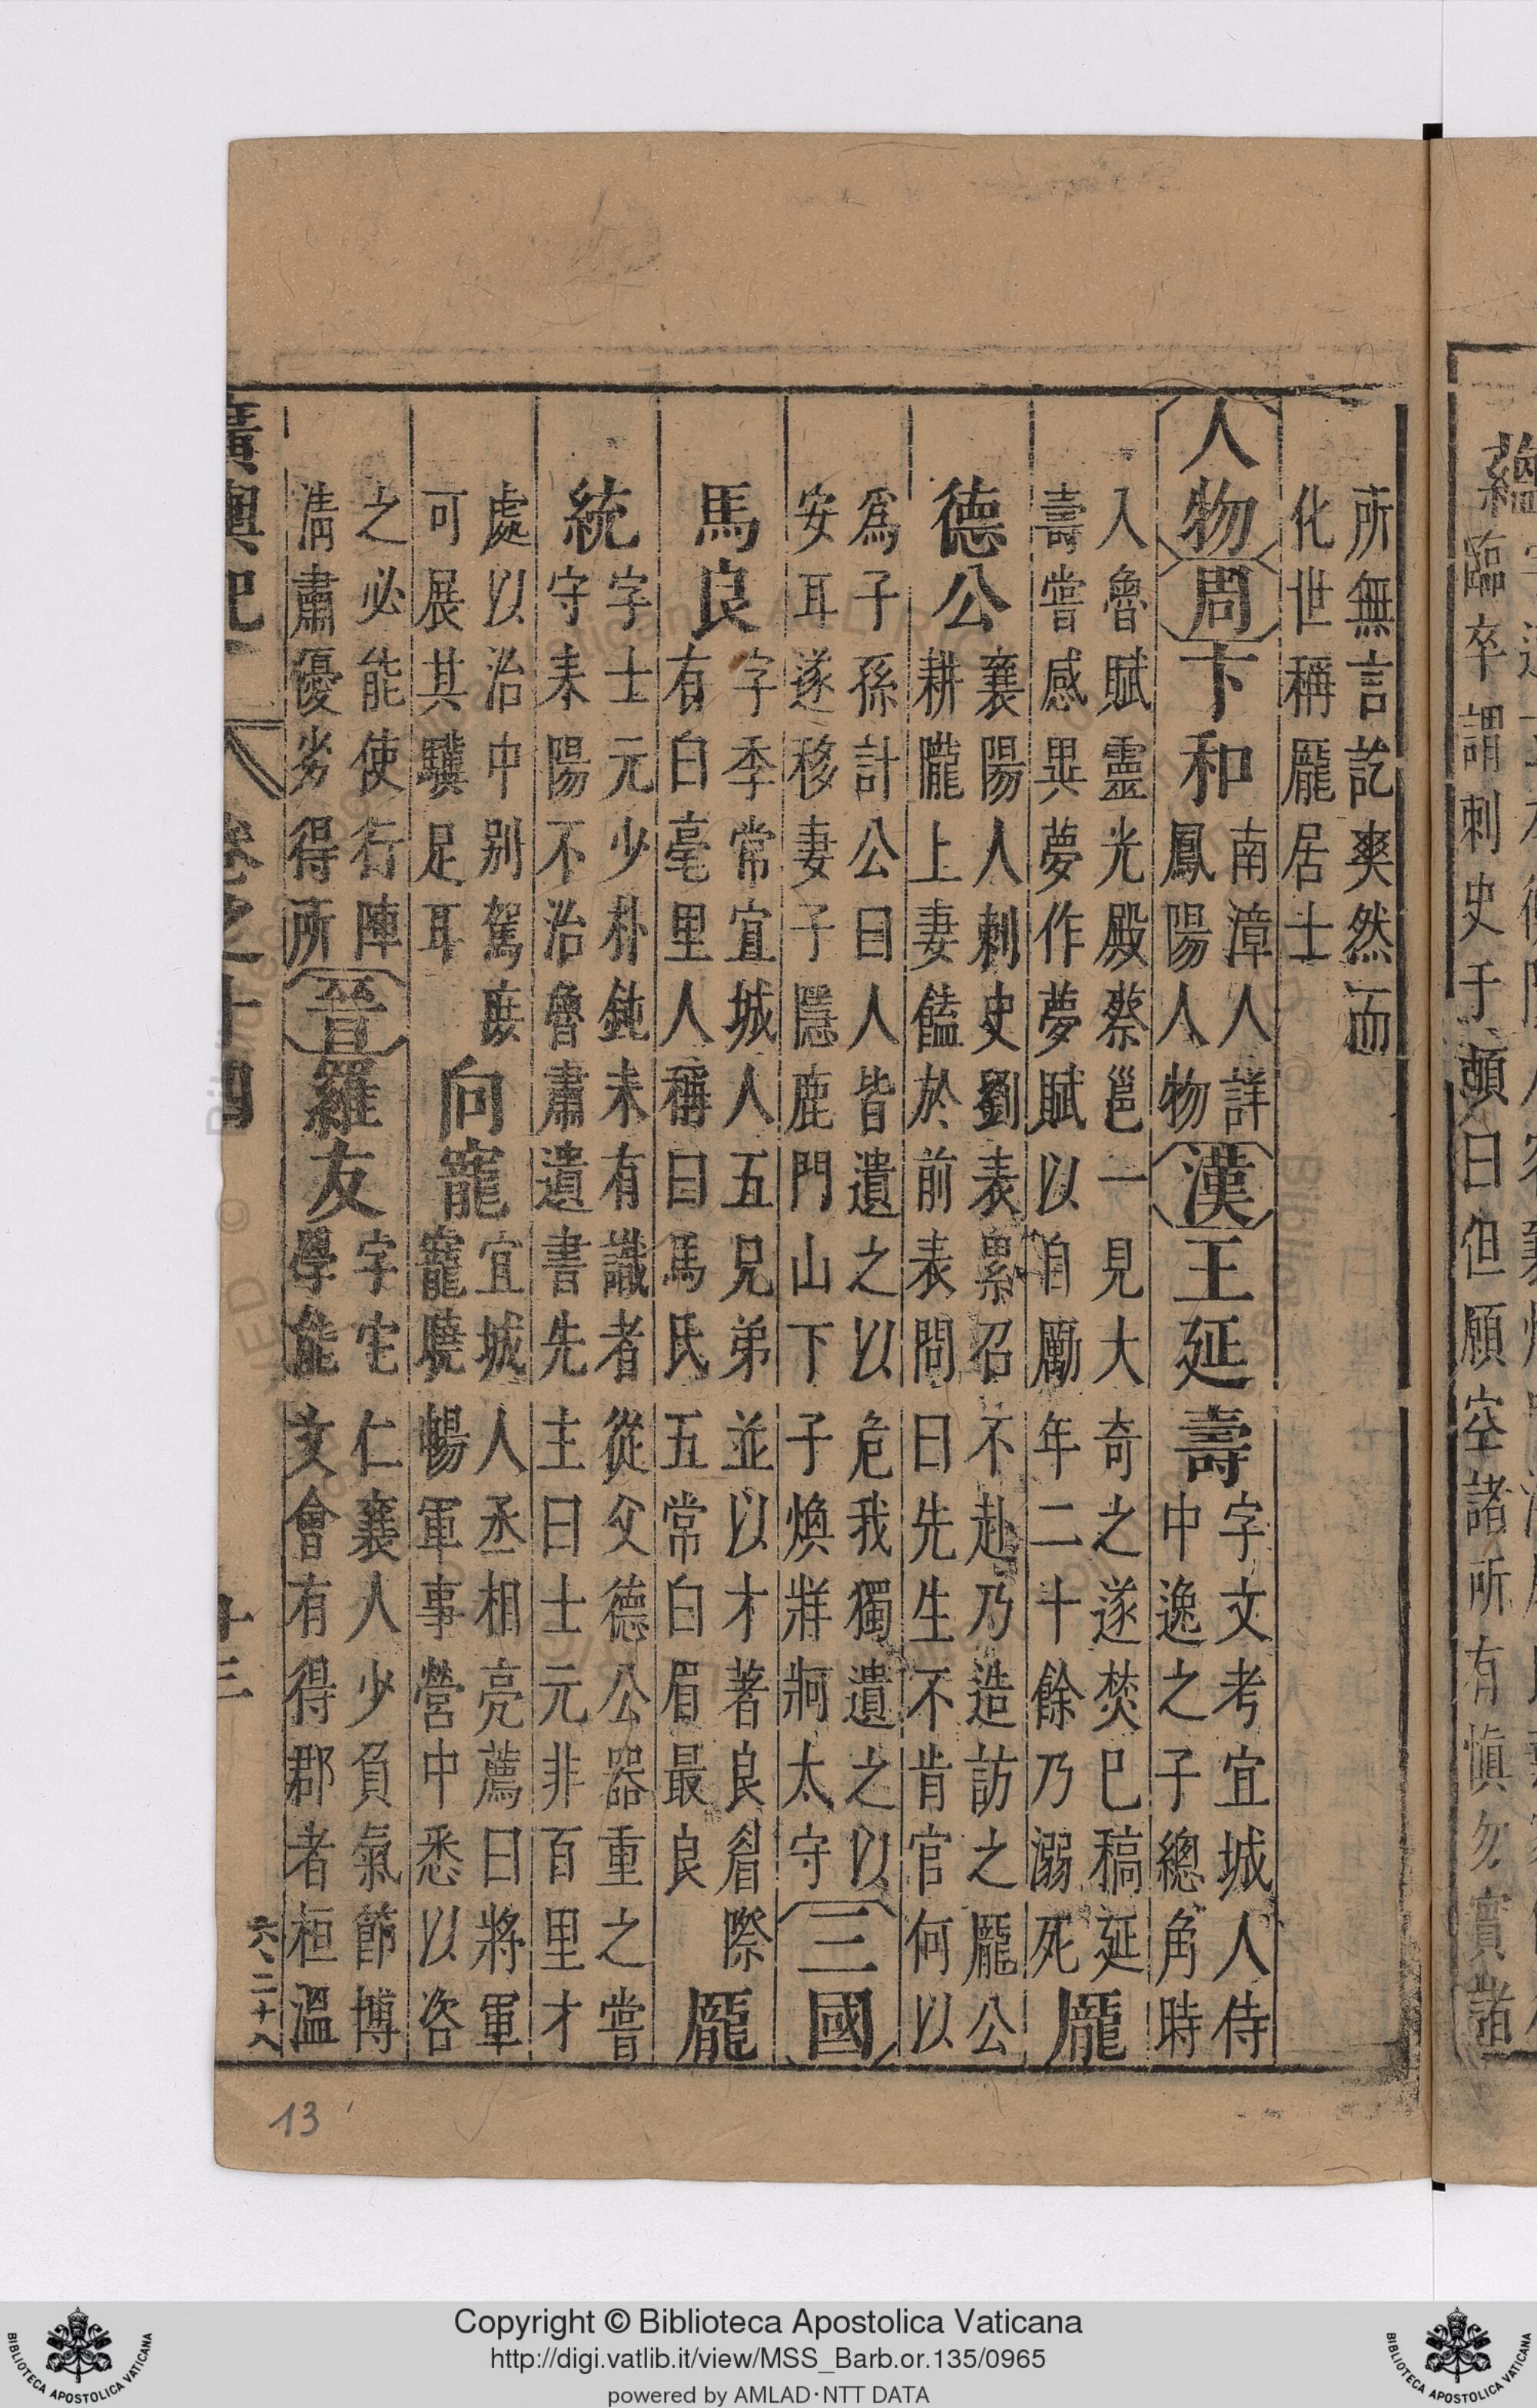 蘊
臨卒謂刺史于頔曰但願空諸所有慎勿實諸
所無言訖爽然而
化世稱龐居士
人物 周 卞和 南漳人詳
鳳陽人物 漢 王延壽 字文考宜城人侍
中逸之子總角時
入魯賦靈光殿蔡邕一見大奇之遂焚已稿延
壽嘗感異夢作夢賦以自勵年二十餘乃溺死 龐
德公 襄陽人刺史劉表累召不赴乃造訪之龐公
耕隴上妻饁於前表問曰先生不肯官何以
爲子孫計公曰人皆遺之以危我獨遺之以
安耳遂移妻子隱鹿門山下子煥牂牁太守 三國
馬良 字季常宜城人五兄弟並以才著良眉際
有白毫里人稱曰馬氏五常白眉最良 龐
統 字士元少朴鈍未有識者從父德公器重之嘗
守耒陽不治魯肅遺書先主曰士元非百里才
處以治中别駕庻
可展其驥足耳 向寵 宜城人丞相亮薦曰將軍
寵曉暢軍事營中悉以咨
之必能使行陣
淸肅優劣得所 晉 羅友 字宅仁襄人少負氣節博
學能文會有得郡者桓溫
廣輿記 卷之十四 十三 六、二十八
13
Copyright © Biblioteca Apostolica Vaticana
http://digi.vatlib.it/view/MSS_Barb.or.135/0965
powered by AMLAD·NTT DATA
BIBLIOTECA APOSTOLICA VATICANA
BIBLIOTECA APOSTOLICA VATICANA